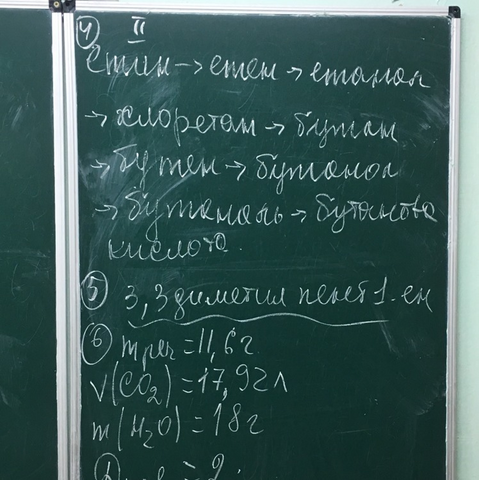 4) II
етин → етен → етанол
→ хлоретан → бутан
→ бутен → бутанол
→ бутаналь → бутанова
кислота.
5) 3,3 диметил пент 1-ен
6) m реч = 11,6 г
V(CO₂) = 17,92 л
m(H₂O) = 18 г